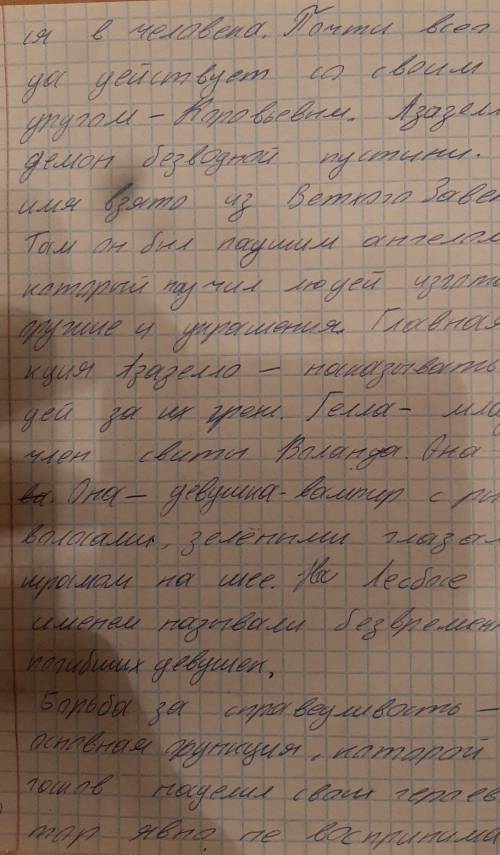 ся в человека. Почти всег
да действует со своим
другом - Коровьевым. Азазелл
демон безводной пустыни.
имя взято из Ветхого Заве
Там он был падшим ангелом
который научил людей изгото
оружие и украшения. Главная
кция Азазелло - наказывать
дей за их грехи. Гелла - мла
член свиты Воланда. Она
Она - девушка-вампир с ры
волосами, зелёными глаза
шрамом на шее. На Лесбосе
именем называли безвремен
погибших девушек.
Борьба за справедливость -
основная функция, которой
гаков наделил своих героев
тор явно не воспринима